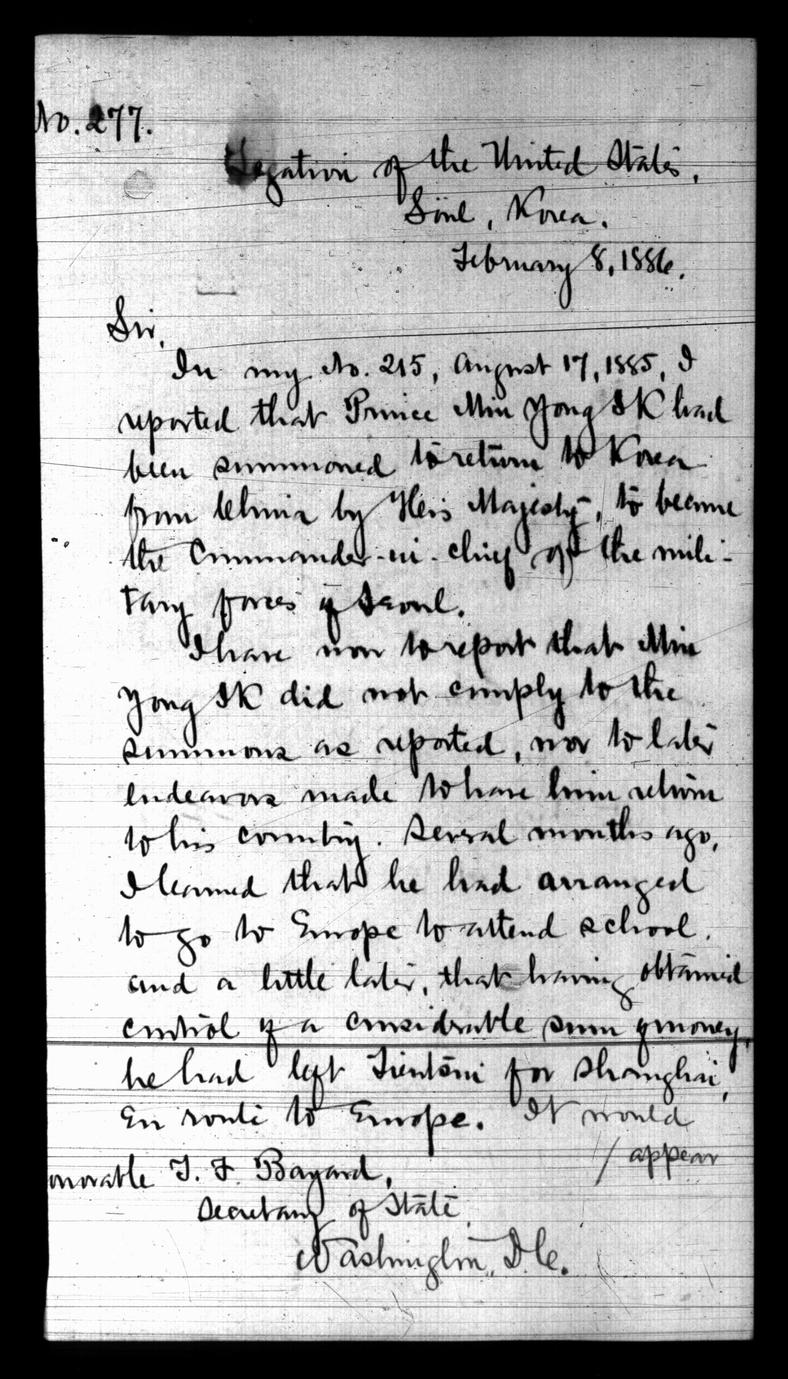 No. 277.
Legation of the United States,
Söul, Korea.
February 8, 1886.
Sir,
In my No. 215, August 17, 1885, I
reported that Prince Min Yong Ik had
been summoned to return to Korea
from China by His Majesty, to become
the Commander-in-chief of the mili-
tary forces of Seoul.
I have now to report that Min
Yong Ik did not comply to the
summons as reported, nor to later
endeavors made to have him return
to his country. Several months ago,
I learned that he had arranged
to go to Europe to attend school,
and a little later, that having obtained
control of a considerable sum of money,
he had left Tientsin for Shanghai,
En route to Europe. It would
/ appear
onorable T. F. Bayard,
Secretary of State,
Washington, D.C.